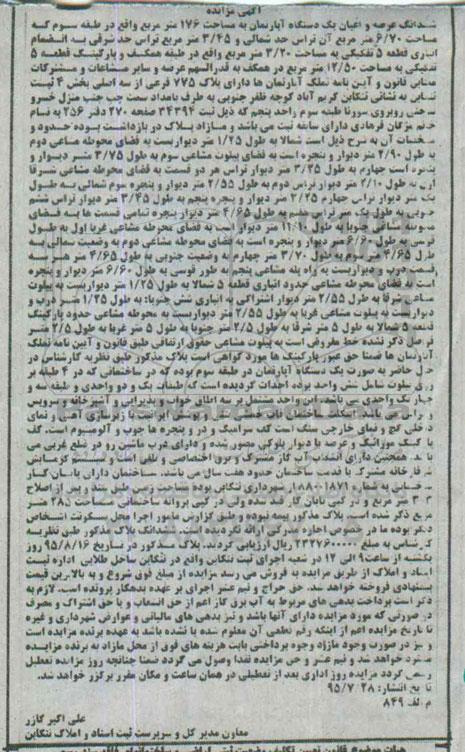 آگهی مزایده
ششدانگ عرصه و اعیان یک دستگاه آپارتمان به مساحت ۱۷۶ متر مربع واقع در طبقه سوم که
مساحت ۶/۷۰ متر مربع آن تراس حد شمالی و ۳/۴۵ متر مربع تراس حد شرقی به انضمام
انباری قطعه ۵ تفکیکی به مساحت ۳/۲۰ متر مربع واقع در طبقه همکف و پارکینگ قطعه ۵
تفکیکی به مساحت ۱۲/۵۰ متر مربع در همکف به قدرالسهم عرصه و سایر مشاعات و مشترکات
مطابق قانون و آیین نامه تملک آپارتمان ها دارای پلاک ۷۷۵ فرعی از سه اصلی بخش ۴ ثبت
تنکابن به نشانی تنکابن کریم آباد کوچه ظفر جنوبی به طرف بامداد سمت چپ جنب منزل خسرو
متحنی روبروی سوزنا طبقه سوم واحد پنجم که ذیل ثبت ۳۴۳۹۴ صفحه ۲۷۰ دفتر ۲۵۶ به نام
خانم مژگان فرهادی دارای سابقه ثبت می باشد و مازاد پلاک در بازداشت بوده حدود و
مشخصات آن به شرح ذیل است شمالا به طول ۱/۲۵ متر دیواریست به فضای محوطه مشاعی دوم
به طول ۲/۹۰ متر دیوار و پنجره است به فضای پیلوت مشاعی سوم به طول ۳/۷۵ متر دیوار و
پنجره است چهارم به طول ۳/۲۵ متر دیوار تراس هر دو قسمت به فضای محوطه مشاعی شرقا
اول به طول ۲/۱۰ متر دیوار تراس دوم به طول ۲/۵۵ متر دیوار و پنجره سوم شمالی به طول
یک متر دیوار تراس چهارم ۲/۲۵ متر دیوار و پنجره پنجم به طول ۳/۴۵ متر دیوار تراس ششم
جنوبی به طول یک متر تراس هفتم به طول ۴/۶۵ متر دیوار پنجره تمامی قسمت ها به فضای
محوطه مشاعی جنوبا به طول ۱۱/۱۰ متر دیوار است به فضای محوطه مشاعی غربا اول به طول
قوسی به طول ۶/۶۰ متر دیوار و پنجره است به فضای محوطه مشاعی دوم به وضعیت شمالی به
طول ۴/۶۵ متر سوم به طول ۳/۷۰ متر چهارم به وضعیت جنوبی به طول ۴/۶۵ متر هر سه
قسمت درب و دیواریست به راه پله مشاعی پنجم به طور قوسی به طول ۶/۶۰ متر دیوار و پنجره
است به فضای محوطه مشاعی حدود انباری قطعه ۵ شمالا به طول ۱/۲۵ متر دیواریست به پیلوت
مشاعی شرقا به طول ۲/۵۵ متر دیوار اشتراکی به انباری شش جنوبا به طول ۱/۲۵ متر درب و
دیواریست به پیلوت مشاعی غربا به طول ۲/۵۵ متر دیواریست به محوطه مشاعی حدود پارکینگ
قطعه ۵ شمالا به طول ۵ متر شرقا به طول ۲/۵ متر جنوبا به طول ۵ متر غربا به طول ۲/۵ متر
فواصل ذکر شده خط مفروض است به پیلوت مشاعی حقوق ارتفاقی طبق قانون و آیین نامه تملک
آپارتمان ها ضمنا حق عبور پارکینگ ها مورد گواهی است پلاک مذکور طبق نظریه کارشناس در
حال حاضر به صورت یک دستگاه آپارتمان در طبقه سوم بوده که در ساختمانی که در ۴ طبقه بر
روی پیلوت شامل شش واحد بوده احداث گردیده است که طبقات یک و دو واحدی و طبقه سه و
چهار تک واحدی می باشد. این واحد مشتمل بر سه اطاق خواب و پذیرایی و آشپزخانه و سرویس
و تراس می باشد. اسکلت ساختمان سقف ایرانیت با زیرسازی آهنی و نمای
داخلی گچ و نمای خارجی سنگ است کف سرامیک و در و پنجره ها چوب و آلومینیوم است. کف
با کفک موزائیک و عرصه با دیوار بلوکی محصور شده و دارای درب ماشین رو در ضلع غربی می
باشد همچنین دارای انشعاب آب گاز مشترک و برق اختصاصی و تلفن است. سیستم گرمایش
شوفاژخانه مشترک با قدمت ساختمان حدود هفت سال می باشد. ساختمان دارای پایان کار
ساختمانی به شماره ۱۸۸۰۰۱۸۷۱ شهرداری تنکابن بوده مساحت زمین طبق سند پس از اصلاح
۳۰۳ متر مربع و در کپی پایان کار قید شده ولی در کپی پروانه ساختمانی مساحت ۲۸۵ متر
مربع ذکر شده است. پلاک مذکور بیمه نبوده و طبق گزارش مامور اجرا محل سکونت اشخاص
دیگر بوده ما در خصوص اجاره مدرکی ارائه نگردیده است. ششدانگ پلاک مذکور طبق نظریه
کارشناس به مبلغ ۲۳۲۷۶۰۰۰۰۰ ریال ارزیابی گردید. پلاک مذکور در تاریخ ۹۵/۸/۱۶ روز
یکشنبه از ساعت ۹ الی ۱۲ در شعبه اجرای ثبت تنکابن واقع در تنکابن ساحل طلایی اداره ثبت
اسناد و املاک از طریق مزایده به فروش می رسد مزایده از مبلغ فوق شروع و به بالاترین قیمت
پیشنهادی فروخته خواهد شد. حق حراج و نیم عشر اجرای بر عهده بدهکار پرونده است. لازم به
ذکر است پرداخت بدهی های مربوط به آب برق گاز اعم از حق انشعاب و یا حق اشتراک و مصرف
در صورتی که مورد مزایده دارای آنها باشد و نیز بدهی های مالیاتی و عوارض شهرداری و غیره
تا تاریخ مزایده اعم از اینکه رقم قطعی آن معلوم شده یا نشده باشد به عهده برنده مزایده است
و نیز در صورت وجود مازاد وجوه پرداختی بابت هزینه های فوق از محل مازاد به برنده مزایده
مسترد خواهد شد و نیم عشر و حق مزایده نقدا وصول می گردد ضمنا چنانچه روز مزایده تعطیل
رسمی گردد مزایده روز اداری بعد از تعطیلی در همان ساعت و مکان مقرر برگزار خواهد شد.
تاریخ انتشار: ۹۵/۷/۲۸
م الف ۸۴۹
علی اکبر گازر
معاون مدیر کل و سرپرست ثبت اسناد و املاک تنکابن